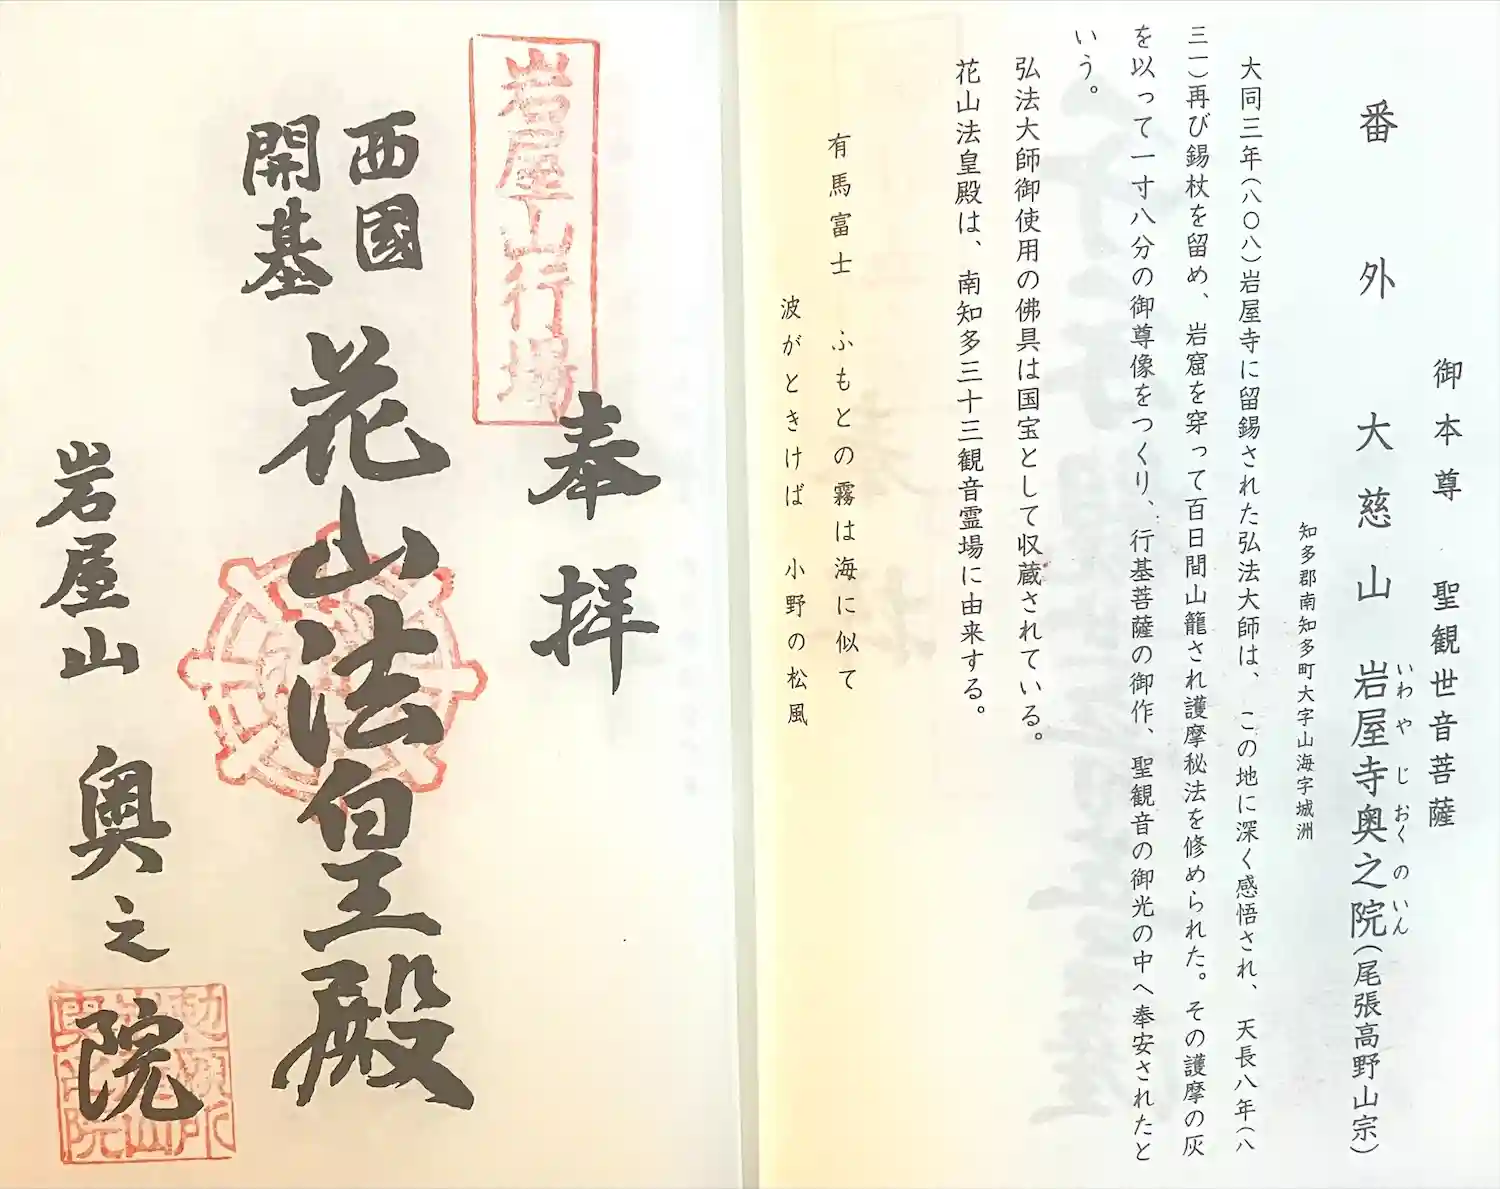 御本尊　聖観世音菩薩
番外　大慈山　岩屋寺奥之院(尾張高野山宗)
いわやじおくのいん
知多郡南知多町大字山海字城洲
大同三年(八〇八)岩屋寺に留錫された弘法大師は、この地に深く感悟され、天長八年(八
三一)再び錫杖を留め、岩窟を穿って百日間山籠され護摩秘法を修められた。その護摩の灰
を以って一寸八分の御尊像をつくり、行基菩薩の御作、聖観音の御光の中へ奉安されたと
いう。
弘法大師御使用の佛具は国宝として収蔵されている。
花山法皇殿は、南知多三十三観音霊場に由来する。
有馬富士　ふもとの霧は海に似て
波がときけば　小野の松風
岩屋山行場
奉拝
西國
開基
花山法皇殿
岩屋山　奥之院